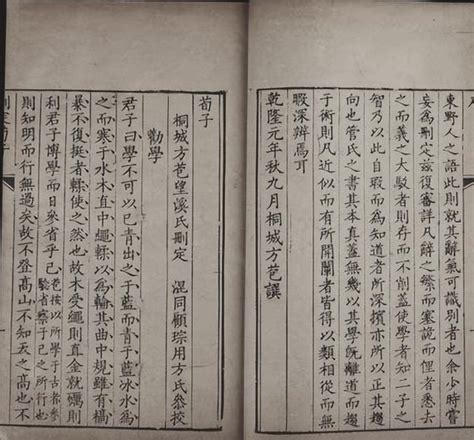 東野人之語此則辭氣可識別者也余少時嘗
妄為刪定茲復審詳凡辭之繁而塞詭而俚者悉去
之而義之大駁者則存而不削蓋使學者知二子之
智乃以此自瑕而為知道者所深擯亦所以正其趨
向也管氏之書其本真蓋無幾以其學既離道而趨
於術則凡近似而有所開闡者皆得以類相從而無
暇深辨焉可
乾隆元年秋九月桐城方苞譔
荀子
桐城方苞望溪氏刪定 混同顧琮用方氏參校
勸學
君子曰學不可以已青出之于藍而青于藍冰水為
之而寒于水木直中繩輮以為輪其曲中規雖有槁
暴不復挺者輮使之然也故木受繩則直金就礪則
利君子博學而日參省乎己 苞按以所學于古者參
驗省察于己之所行也
則知明而行無過矣故不登高山不知天之高也不